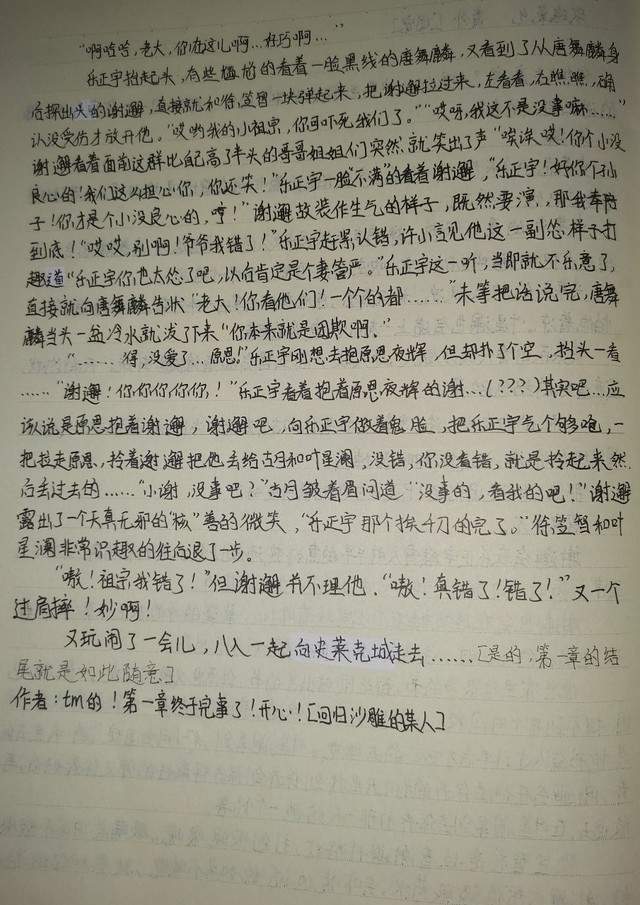 “啊哈哈，老大，你在这儿啊…好巧啊…”
乐正宇抬起头，有些尴尬的看着一脸黑线的唐舞麟，又看到了从唐舞麟身
后探出头的谢邂，直接就和徐笠智一块弹起来，把谢邂拉过来，左看看，右瞧瞧，确
认没受伤才放开他。“哎哟我的小祖宗，你可吓死我们了。”“哎呀，我这不是没事嘛……”
谢邂看着面前这群比自己高了半头的哥哥姐姐们突然就笑出了声“唉唉哎！你个小没
良心的！我们这么担心你，你还笑！”乐正宇一脸不满的看着谢邂，“乐正宇！好你个孙
子！你才是个小没良心的，哼！”谢邂故装作生气的样子，既然要演，那我奉陪
到底！“哎哎，别啊！爷爷我错了！”乐正宇赶紧认错，许小言见他这一副怂样子打
趣道“乐正宇你也太怂了吧，以后肯定是个妻管严。”乐正宇这一听，当即就不乐意了，
直接就向唐舞麟告状“老大！你看他们！一个个的都……”未等把话说完，唐舞
麟当头一盆冷水就泼了下来“你本来就是团欺啊。”
“……得，没爱了…原恩！”乐正宇刚想去把原恩夜辉，但却扑了个空，抬头一看
……“谢邂！你你你你你！”乐正宇看着抱着原恩夜辉的谢…(???)其实吧…应
该说是原恩抱着谢邂，谢邂吧，向乐正宇做着鬼脸，把乐正宇气个够呛，一
把拉走原恩，拎着谢邂把他丢给古月和叶星澜，没错，你没看错，就是拎起来然
后丢过去的……“小谢，没事吧？”古月皱着眉问道“没事的，看我的吧！”谢邂
露出了一个天真无邪的“核”善的微笑，“乐正宇那个挨千刀的完了。”徐笠智和叶
星澜非常识趣的往后退了一步。
“嗷！祖宗我错了！”但谢邂并不理他，“嗷！真错了！错了！”又一个
过肩摔！妙啊！
又玩闹了一会儿，八人一起向史莱克城走去……[是的，第一章的结
尾就是如此随意]
作者：tm的！第一章终于完事了！开心！[回归沙雕的某人]